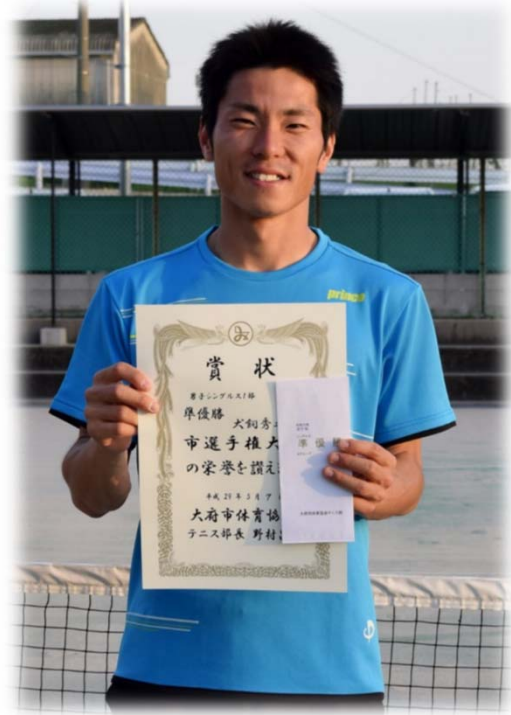 prince
賞状
男子シングルス1部
準優勝
犬飼秀
市選手権大
の栄誉を讃え
平成29年5月7
大府市体育協
テニス部長 野村
準優勝